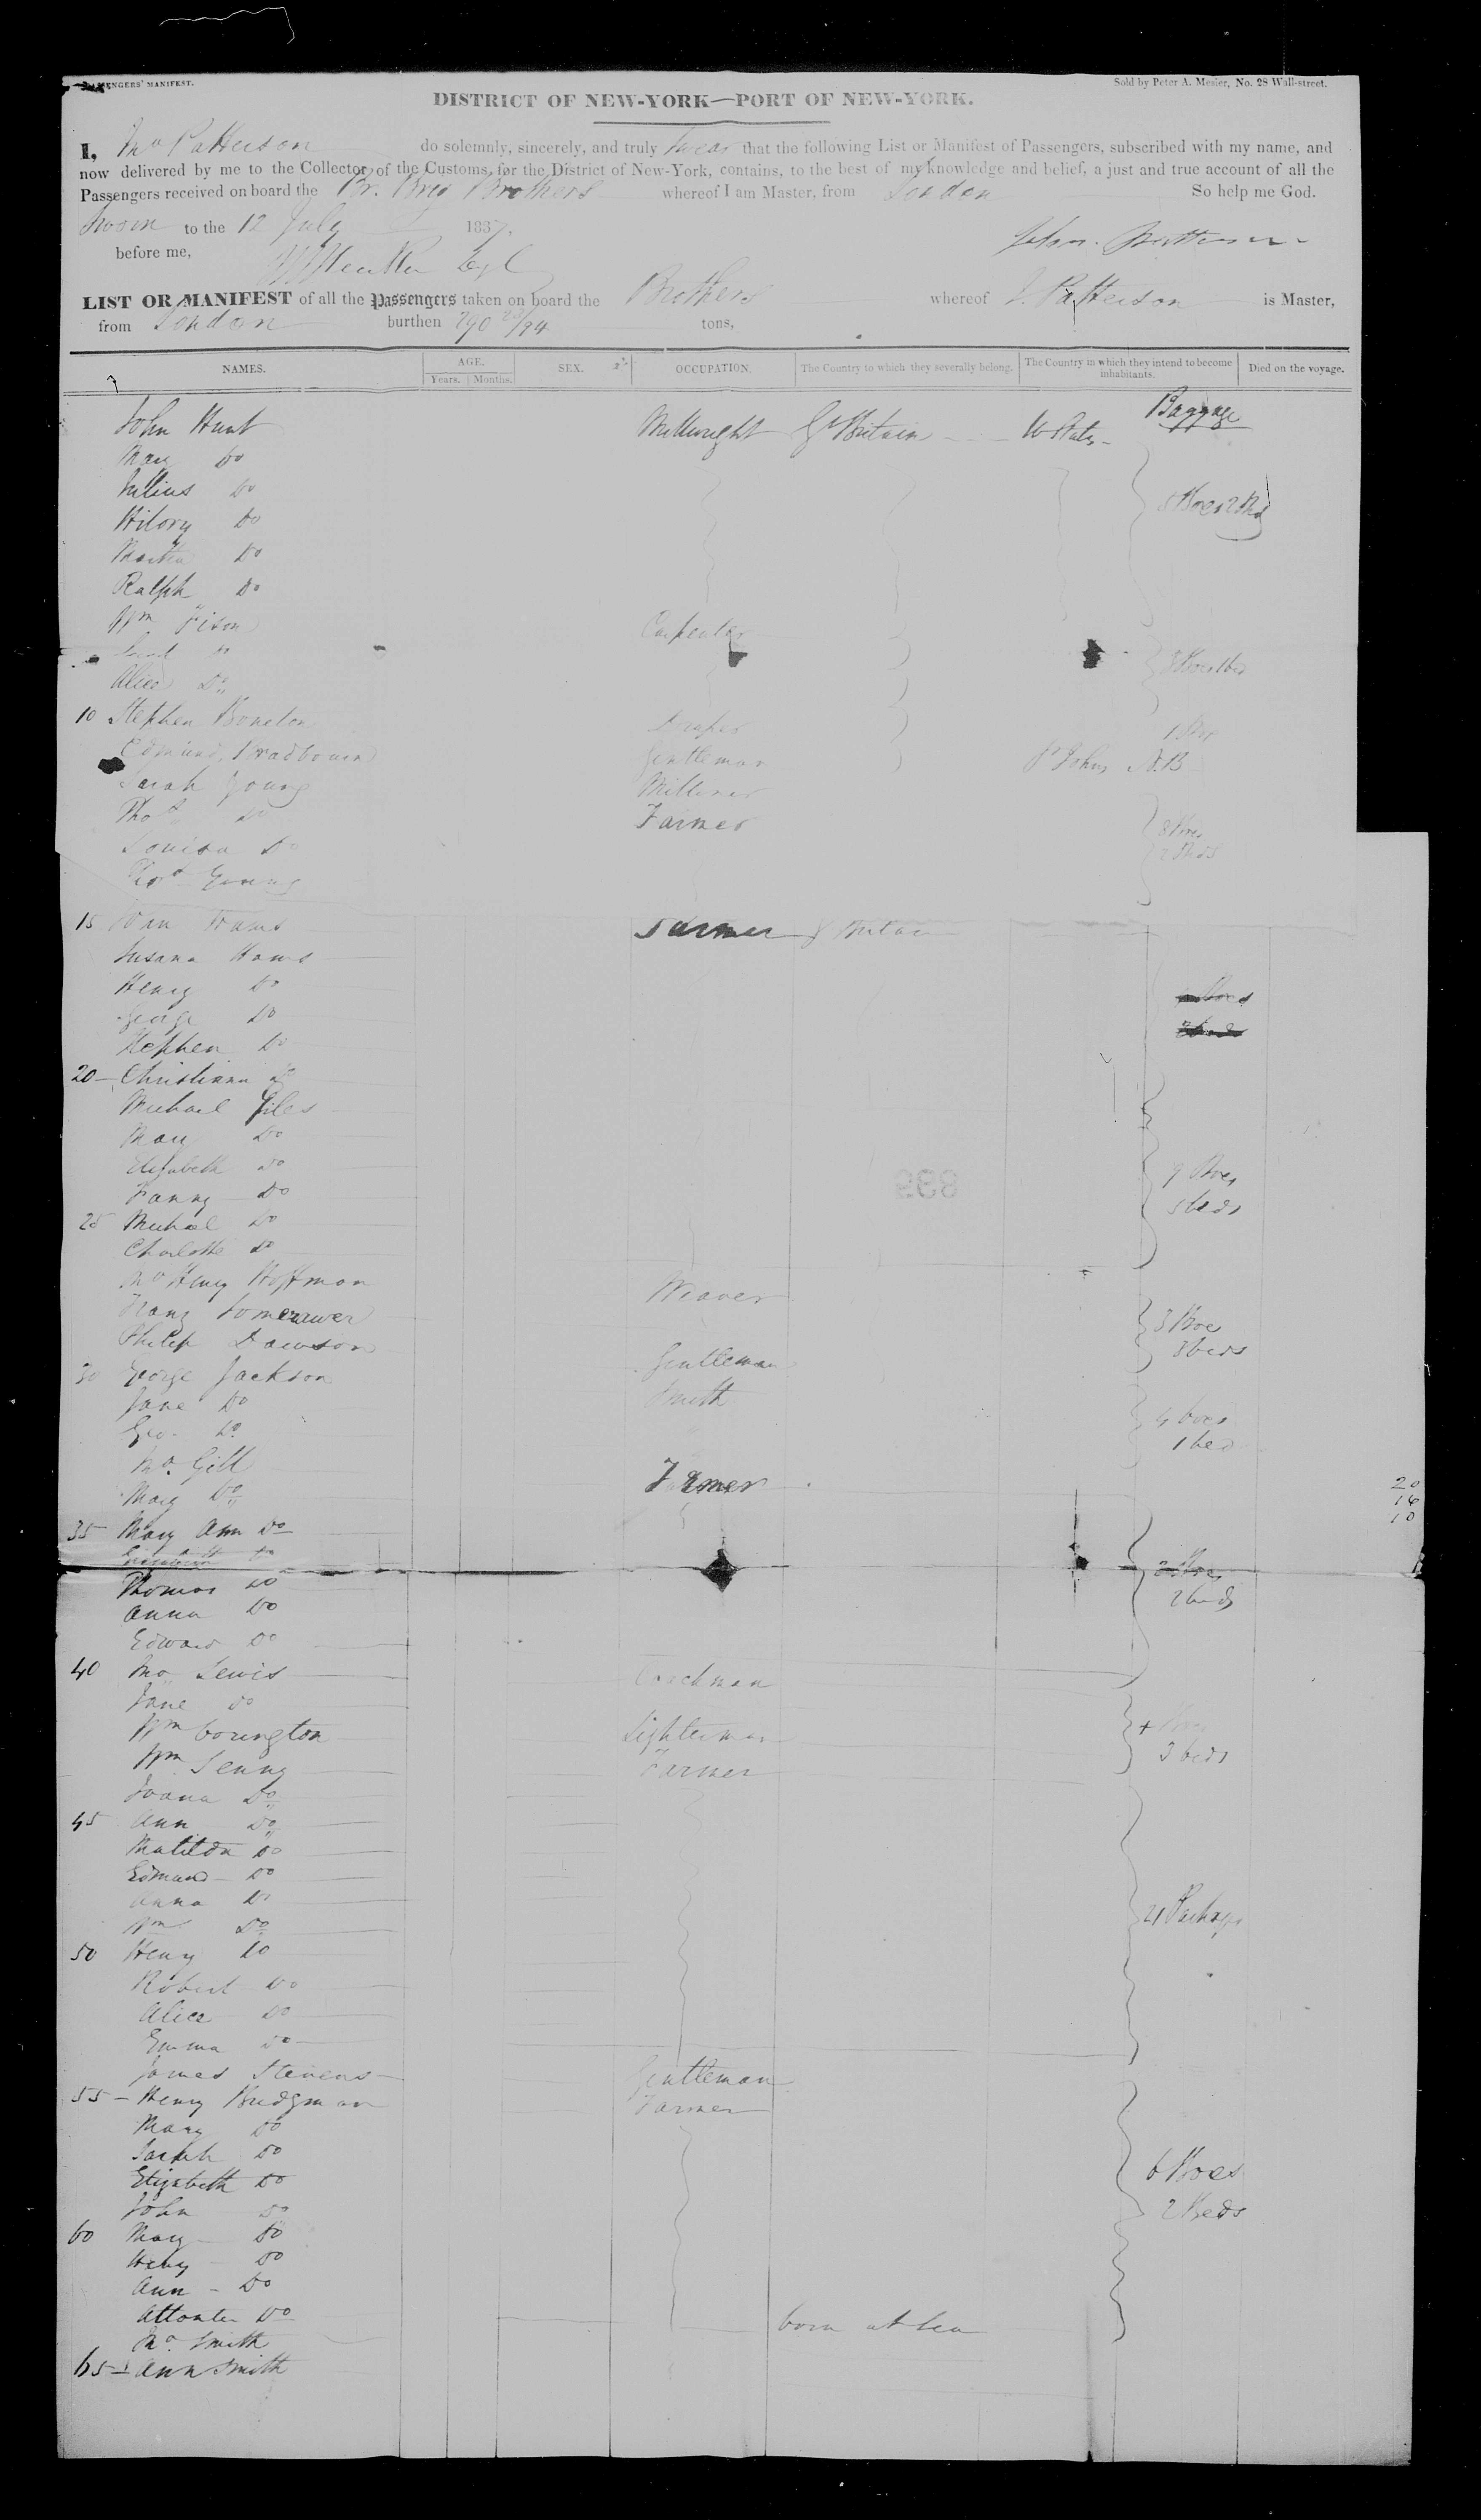 PASSENGERS' MANIFEST.
Sold by Peter A. Mesier, No. 28 Wall-street.
DISTRICT OF NEW-YORK—PORT OF NEW-YORK.
I, Jno Patterson do solemnly, sincerely, and truly swear that the following List or Manifest of Passengers, subscribed with my name, and
now delivered by me to the Collector of the Customs, for the District of New-York, contains, to the best of my knowledge and belief, a just and true account of all the
Passengers received on board the Br. Brig Brothers whereof I am Master, from London So help me God.
Sworn to the 12 July 1837.
before me,
John Patterson
LIST OR MANIFEST of all the Passengers taken on board the Brothers whereof J. Patterson is Master,
from London burthen 290 /94 tons,
NAMES. AGE. Years. Months. SEX. OCCUPATION. The Country to which they severally belong. The Country in which they intend to become inhabitants. Died on the voyage.
Baggage
John Hunt Millwright Gt Britain U States
Mary Do
Julius Do
Hilory Do
Martha Do
Ralph Do
Wm Fison Carpenter
Do
Alice Do
10 Stephen Draper
Edmund Bradbourn Gentleman St Johns N.B
Sarah Young Milliner
Thos Do Farmer
Louisa Do
Young
15 Hams Farmer Gt Britain
Susana Hams
Henry Do
George Do
Stephen Do
20 Christiana Do
Michael Giles
Mary Do
Elizabeth Do
Fanny Do
9 Boxes
5 beds
25 Michael Do
Charlotte Do
Jno Henry Hoffman Weaver
Franz
3 Boxes
Philip Dawson Gentleman
3 beds
30 George Jackson Smith
Jane Do
4 boxes
Geo. Do
1 bed
Jno. Gill Farmer
Mary Do
20
14
10
35 Mary Ann Do
Do
Thomas Do
2 beds
Anna Do
Edward Do
40 Jno Lewis Coachman
Jane Do
Wm Covington Lighterman
3 beds
Wm Jenny Farmer
Joana Do
45 Ann Do
Matilda Do
Edmund Do
Anna Do
21 Packages
Wm Do
50 Henry Do
Robert Do
Alice Do
Emma Do
James Stevens Gentleman
55 Henry Bridgman Farmer
Mary Do
Sarah Do
6 Boxes
Elizabeth Do
John Do
2 Beds
60 Mary Do
Henry Do
Ann Do
Do born at Sea
Jno. Smith
65 Ann Smith